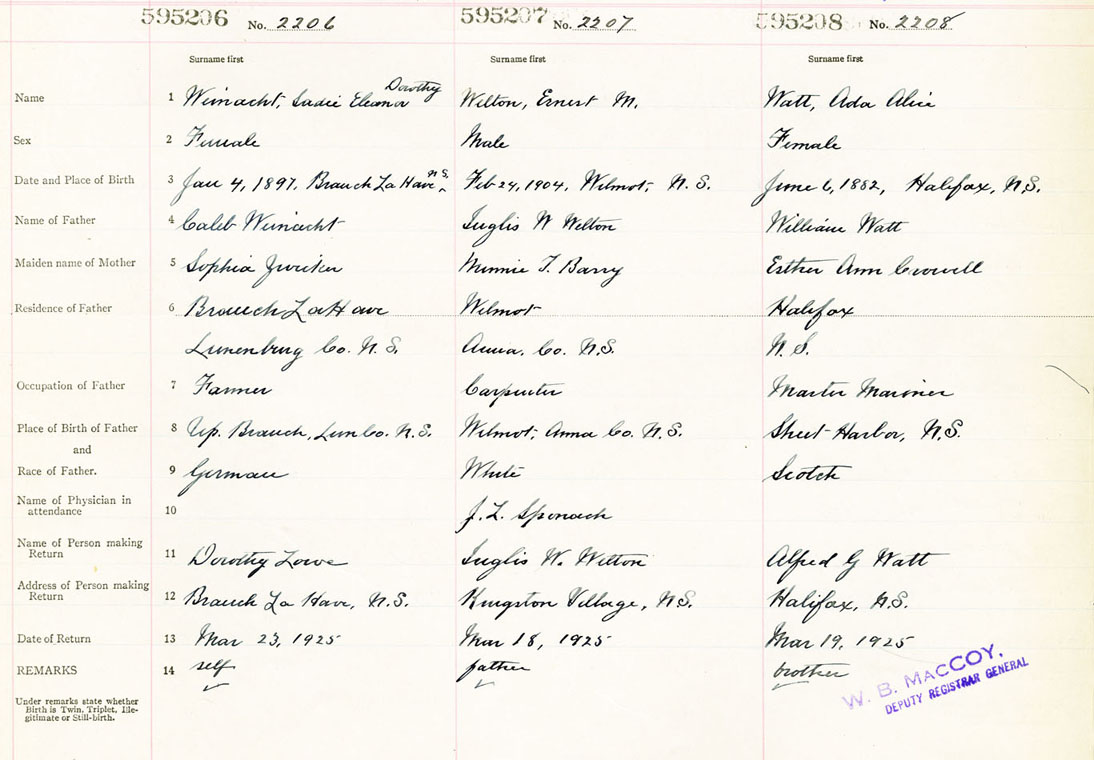 595206 No. 2206 595207 No. 2207 595208 No. 2208
Surname first Surname first Surname first
Dorothy
Name 1 Weinacht, Sadie Eleanor Welton, Ernest M. Watt, Ada Alice
Sex 2 Female Male Female
N.S.
Date and Place of Birth 3 Jan 4, 1897. Branch La Have Feb 24, 1904. Wilmot, N.S. June 6, 1882, Halifax, N.S.
Name of Father 4 Caleb Weinacht Inglis W Welton William Watt
Maiden name of Mother 5 Sophia Zwicker Minnie T. Barry Esther Ann Crowell
Residence of Father 6 Branch LaHave Wilmot Halifax
Lunenburg Co. N.S. Anna. Co. N.S. N.S.
Occupation of Father 7 Farmer Carpenter Master Mariner
Place of Birth of Father 8 Up. Branch, Lun Co. N.S. Wilmot, Anna Co. N.S. Sheet Harbor, N.S.
and
Race of Father. 9 German White Scotch
Name of Physician in
attendance 10 J. L.
Name of Person making
Return 11 Dorothy Lowe Inglis W. Welton Alfred G Watt
Address of Person making
Return 12 Branch La Have, N.S. Kingston Village, N.S. Halifax, N.S.
Date of Return 13 Mar 23, 1925 Mar 18, 1925 Mar 19, 1925
REMARKS 14 self father brother
Under remarks state whether
Birth is Twin, Triplet, Ille-
gitimate or Still-birth.
W. B. MACCOY,
DEPUTY REGISTRAR GENERAL